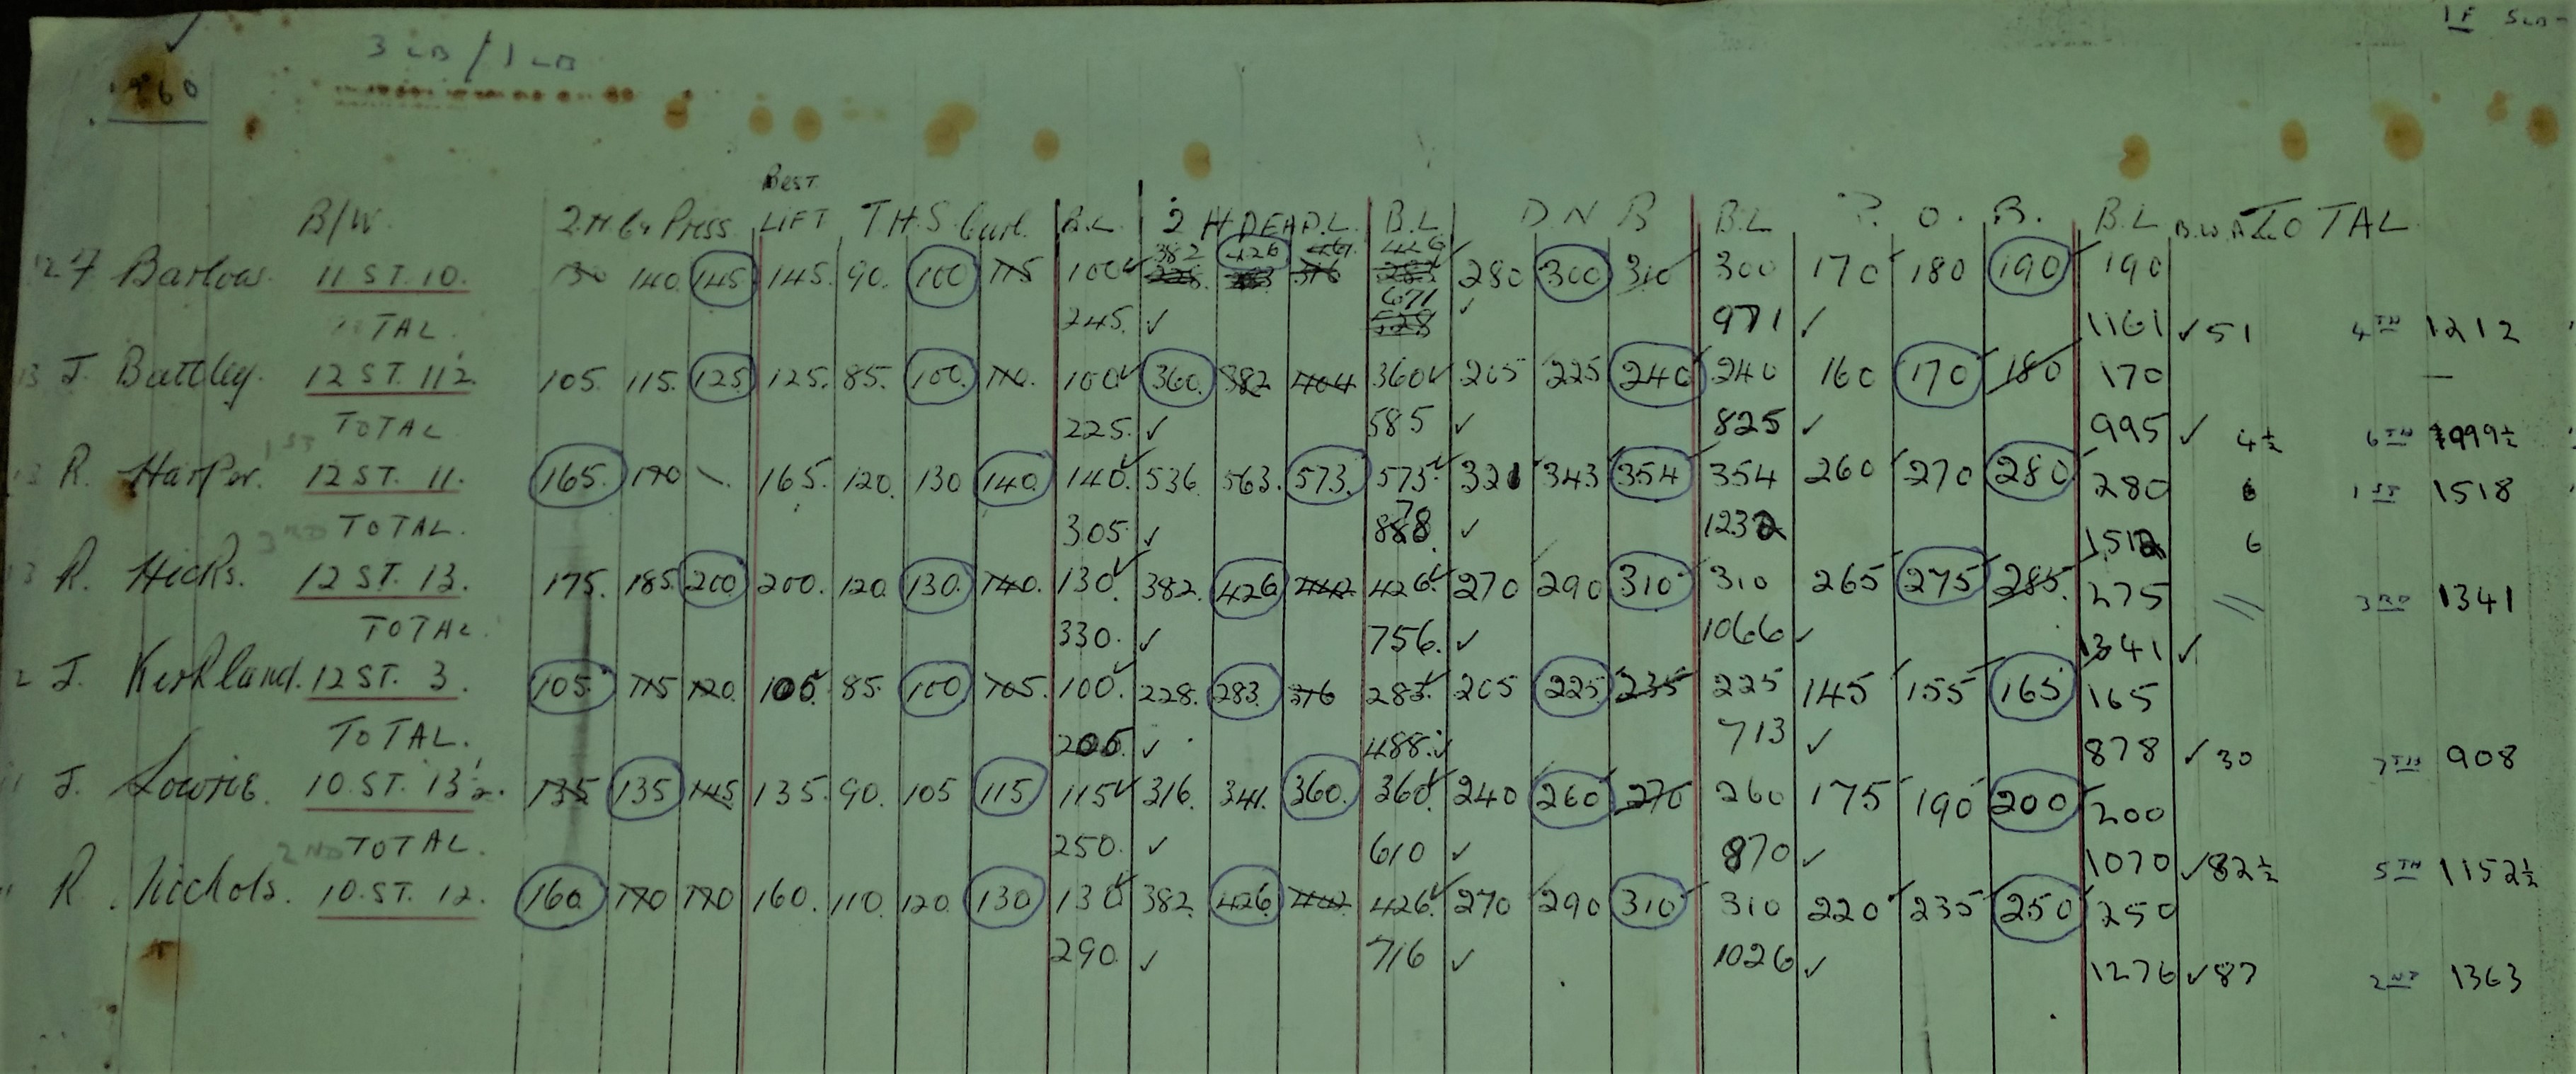 1 F 5 LB-
3 LB / 1 LB
1960
BEST
B/W. 2.H. Press. LIFT T.H.S. Curl. B.L. 2 H DEAD.L. B.L D N B B.L P. O. B. B.L B.W.A. TOTAL
382 426 426
12 F Barlow. 11 ST. 10. 130 140. 145 145. 90. 100 115 100 ✓ 228. 283 316 283 ✓ 280 300 310 300 170 180 190 190
671
TOTAL. 245. ✓ 528 ✓ 971 ✓ 1161 ✓ 51 4TH 1212
13 J. Battley. 12 ST. 11½. 105. 115. 125 125. 85. 100. 110. 100 ✓ 360. 382 404 360 ✓ 205 225 240 240 160 170 180 170 —
TOTAL 225. ✓ 585 ✓ 825 ✓ 995 ✓ 4½ 6TH 999½
1ST
13 R. Harper. 12 ST. 11. 165. 170 \. 165. 120. 130 140. 140. ✓ 536 563. 573. 573. ✓ 321 343 354 354 260 270 280 280 6 1ST 1518
TOTAL. 305. ✓ 878 ✓ 1232 1512 6
3RD
13 R. Hicks. 12 ST. 13. 175. 185. 200 200. 120. 130. 140. 130. ✓ 382. 426 442 426. ✓ 270 290 310 310 265 275 285. 275 3RD 1341
TOTAL. 330. ✓ 756. ✓ 1066 ✓ 1341 ✓
2 J. Kirkland. 12 ST. 3. 105. 115 120. 105 85. 100 105. 100. ✓ 228. 283. 316 283. ✓ 205 225. 235 225 145 155 165 165
TOTAL. 205. ✓ 488. ✓ 713 ✓ 878 ✓ 30 7TH 908
11 J. Lowrie. 10 ST. 13½. 135 135 145 135. 90. 105 115 115 ✓ 316. 341. 360. 360. ✓ 240 260 270 260 175 190 200 200
2ND TOTAL. 250. ✓ 610 ✓ 870 ✓ 1070 ✓ 82½ 5TH 1152½
11 R. Nichols. 10. ST. 12. 160. 170 170 160. 110. 120. 130 130 ✓ 382. 426. 442 426. ✓ 270 290 310 310 220 235 250 250
290. ✓ 716 ✓ 1026 ✓ 1276 ✓ 87 2ND 1363